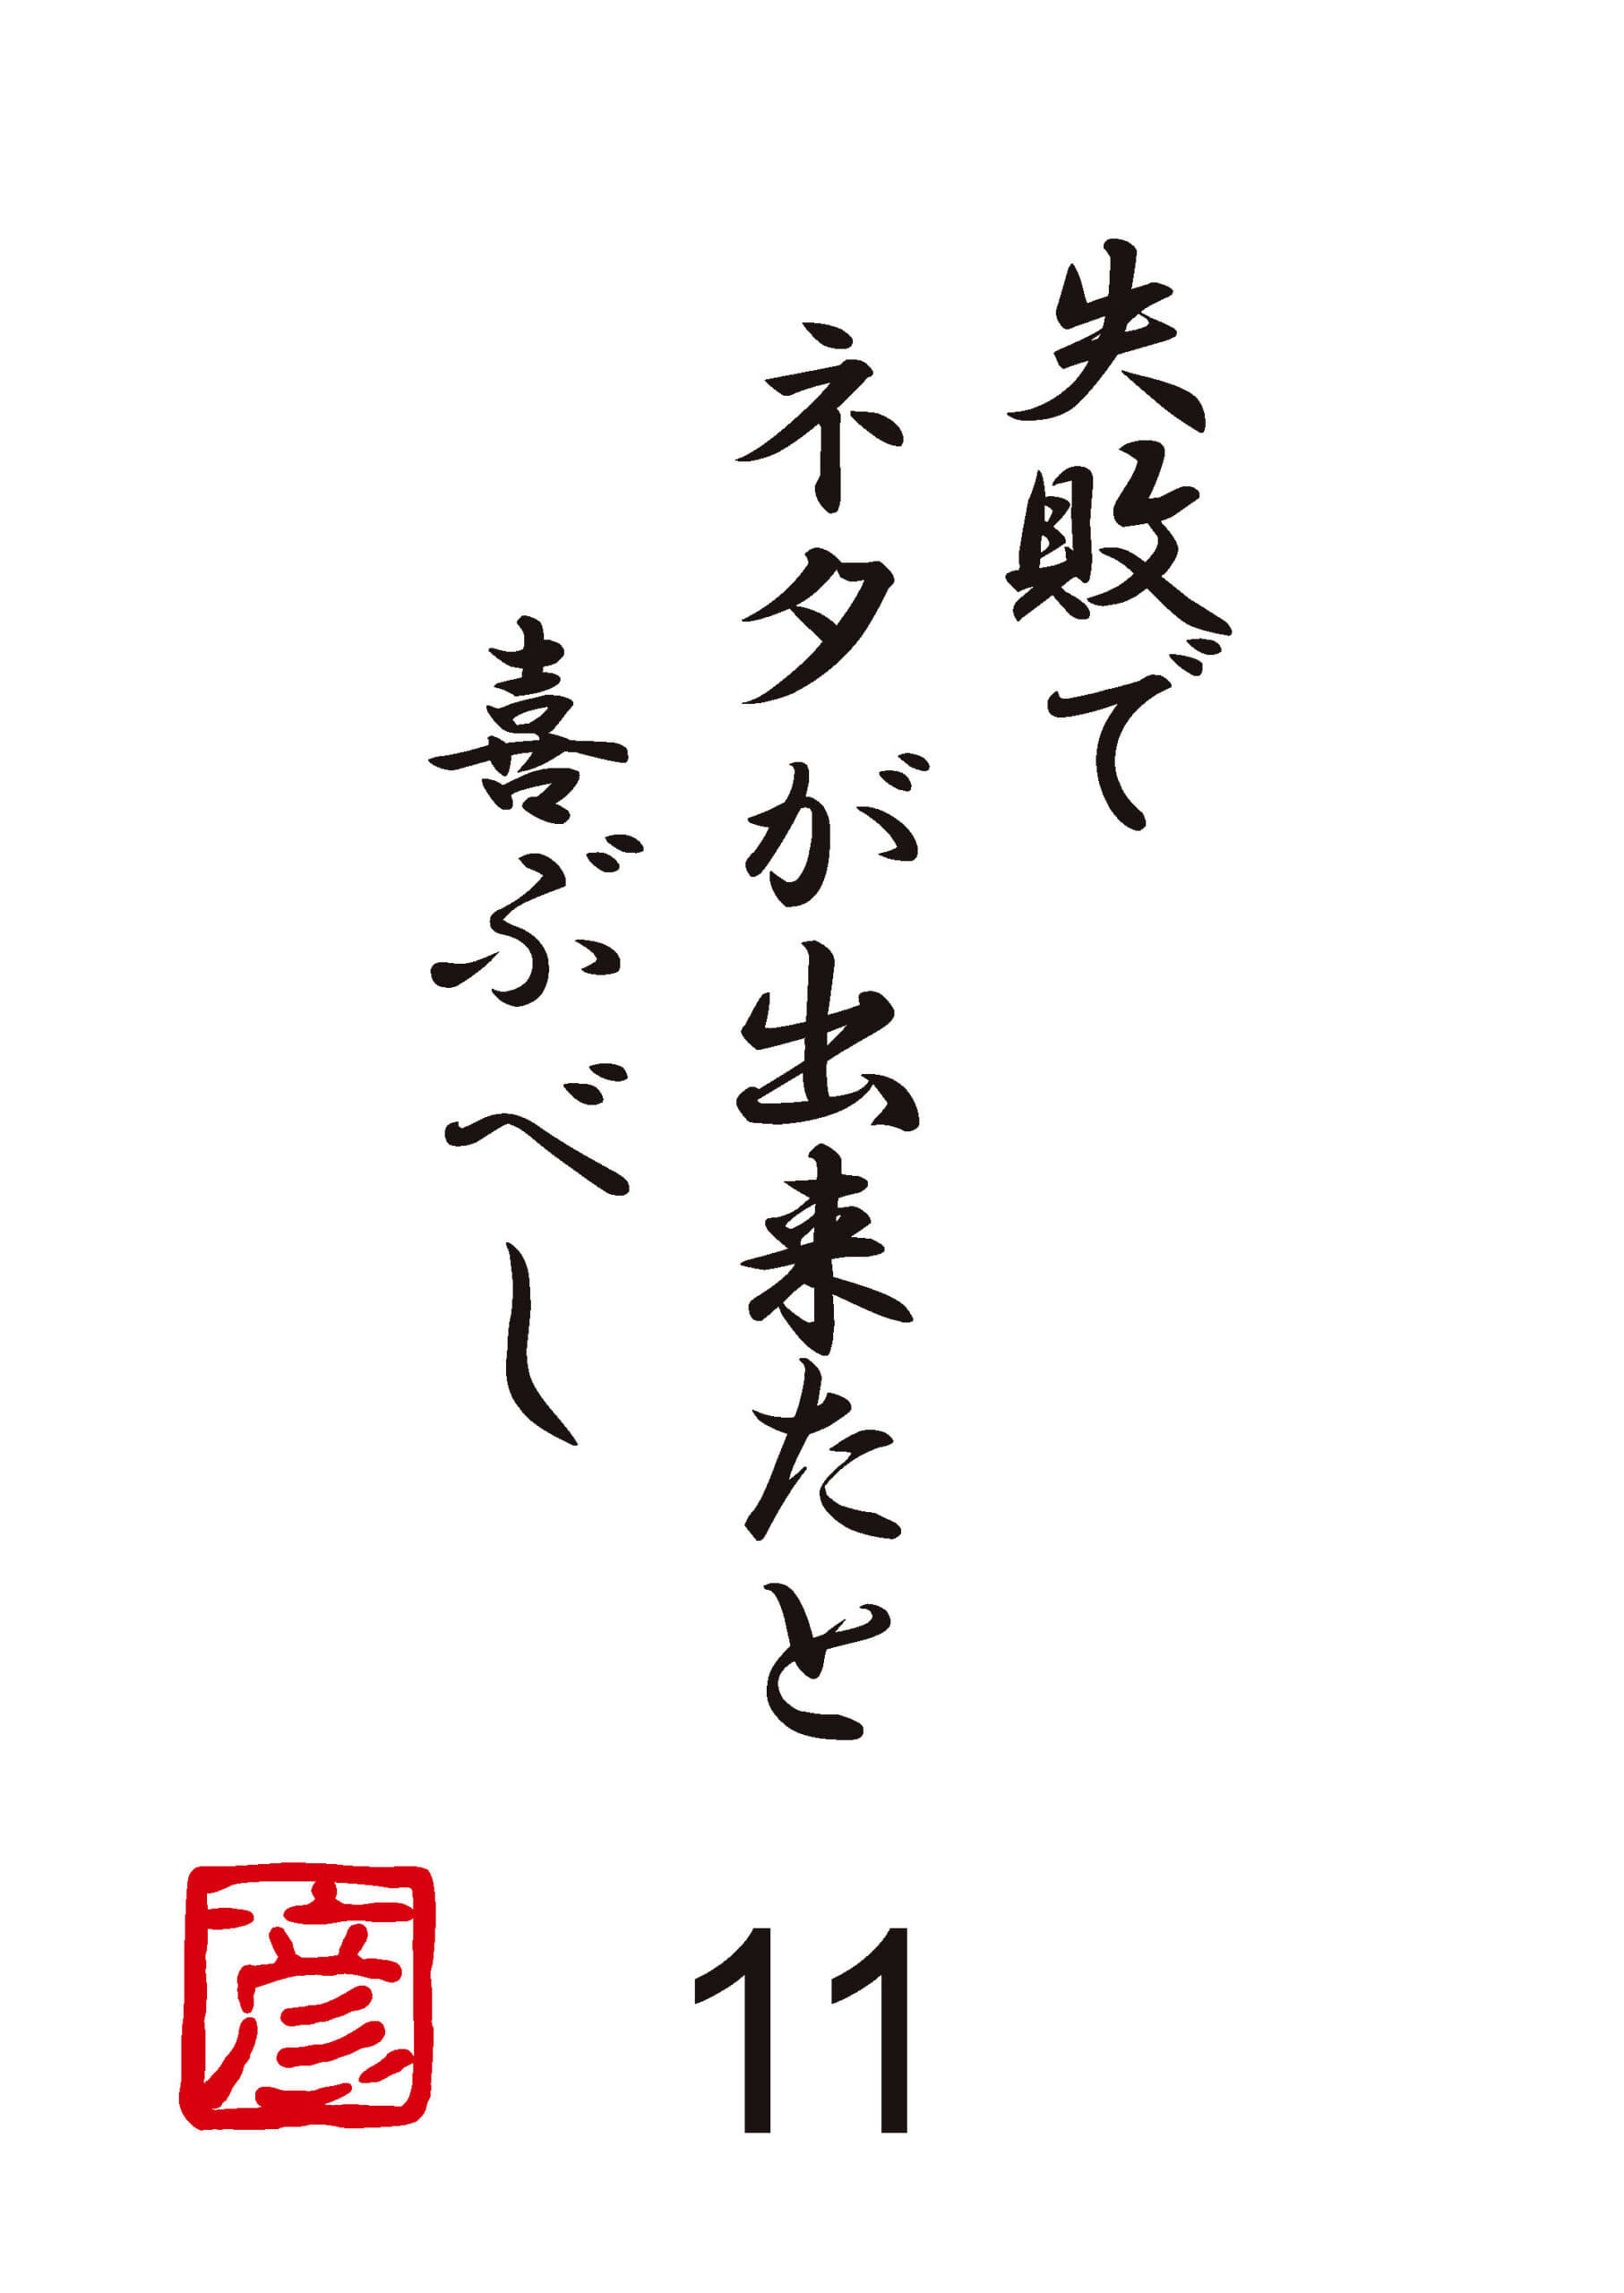 失敗で
ネタが出来たと
喜ぶべし
11
彦